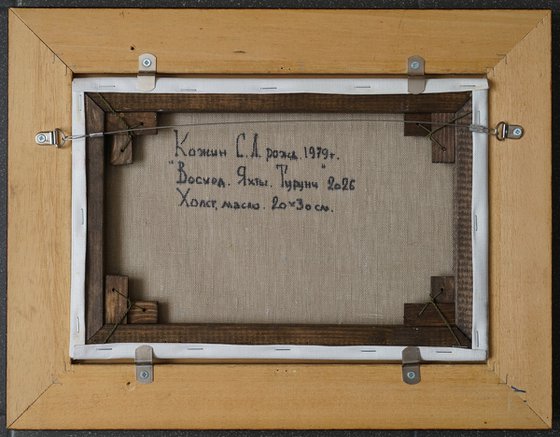 Кожин С.А. рожд. 1979г.
"Восход. Яхты. Туруни" 2026
Холст, масло. 20×30 см.